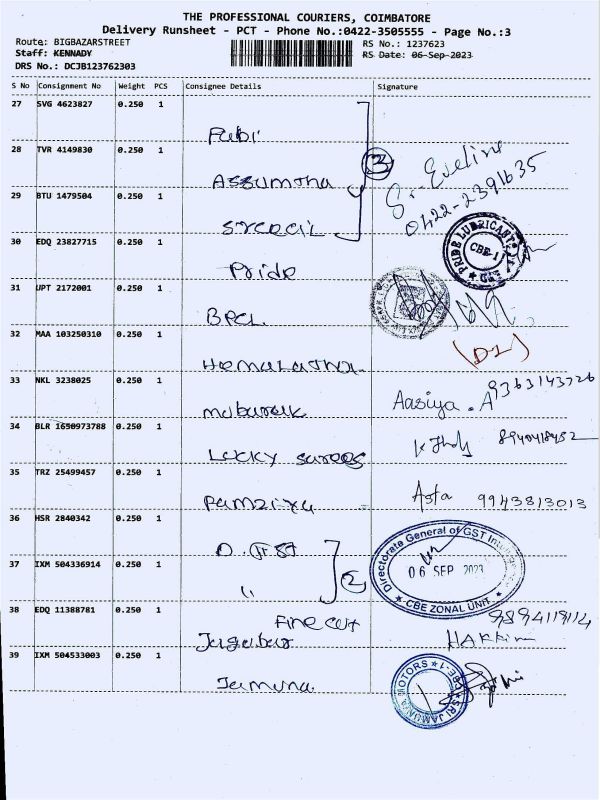 THE PROFESSIONAL COURIERS, COIMBATORE
Delivery Runsheet - PCT - Phone No.:0422-3505555 - Page No.:3
Route: BIGBAZARSTREET
Staff: KENNADY
DRS No.: DCJB123762303
RS No.: 1237623
RS Date: 06-Sep-2023
S No Consignment No Weight PCS Consignee Details Signature
27 SVG 4623827 0.250 1
Fabi
28 TVR 4149830 0.250 1
Assumtha
3
Sr. Eveline
0422-2391635
29 BTU 1479504 0.250 1
30 EDQ 23827715 0.250 1
Pride
PRIDE LUBRICANTS
CBE-1
31 UPT 2172001 0.250 1
BPCL
32 MAA 103250310 0.250 1
Hemalatha
33 NKL 3238025 0.250 1
mubarak
Aasiya . A 9363143726
34 BLR 1650973788 0.250 1
Lucky sarees
8940418452
35 TRZ 25499457 0.250 1
Ramziya
Asfa 9943813013
36 HSR 2840342 0.250 1
D. GST
37 IXM 504336914 0.250 1
"
2
Directorate General of GST
06 SEP 2023
CBE ZONAL UNIT
38 EDQ 11388781 0.250 1
Fine cut
Jagabar
9894119114
HAKKim
39 IXM 504533003 0.250 1
Jamuna
SRI JAMUNA MOTORS
CBE-1